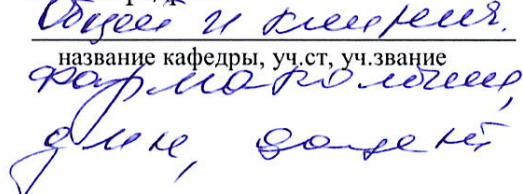 Общей и клинич.
название кафедры, уч.ст, уч.звание
фармакологии,
дмн, доцент